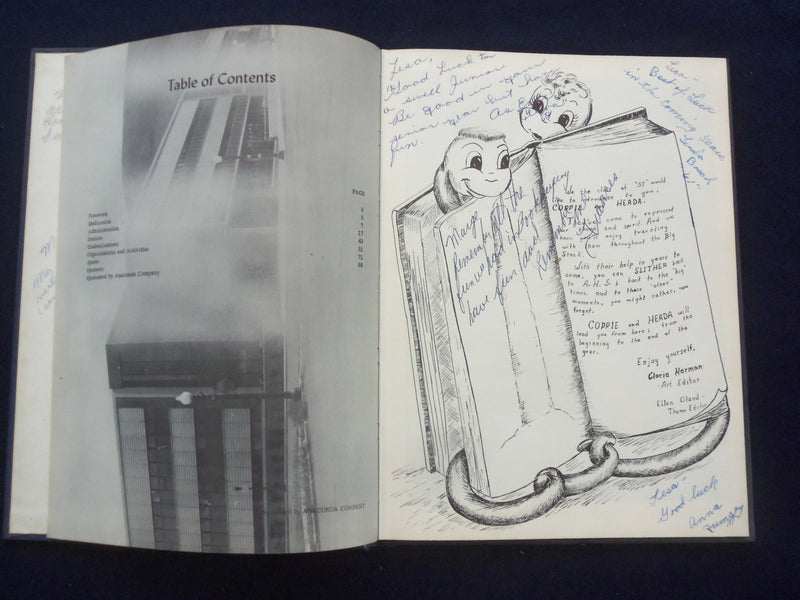 Table of Contents
PAGE
Foreword
Dedication
Administration
Seniors
Underclassmen
Organizations and Activities
Sports
Sponsors
Sponsored by Anaconda Company
ANACONDA COMPANY
Lesa,
Good Luck to
a swell Junior.
Be good in your
senior year but have
fun.
Lesa -
Best of Luck
in the coming years.
Linda
We the class of "57" would
like to introduce to you,
COPPIE HEADA.
They have come to represent
our class and spirit. And we
know you'll enjoy traveling
with them throughout the Big
Stack.
With their help in years to
come, you can SLITHER back
to A.H.S.; back to the "big"
times, and to those "other"
moments, you might rather, now
forget.
COPPIE and HEADA will
lead you from here; from the
beginning to the end of the
year.
Enjoy yourself,
Gloria Harmon
Art Editor
Ellen Oland
Theme Editor
Marge
Remember all the
fun we had in Bookkeeping
have fun and
Lesa -
Good luck
Anna